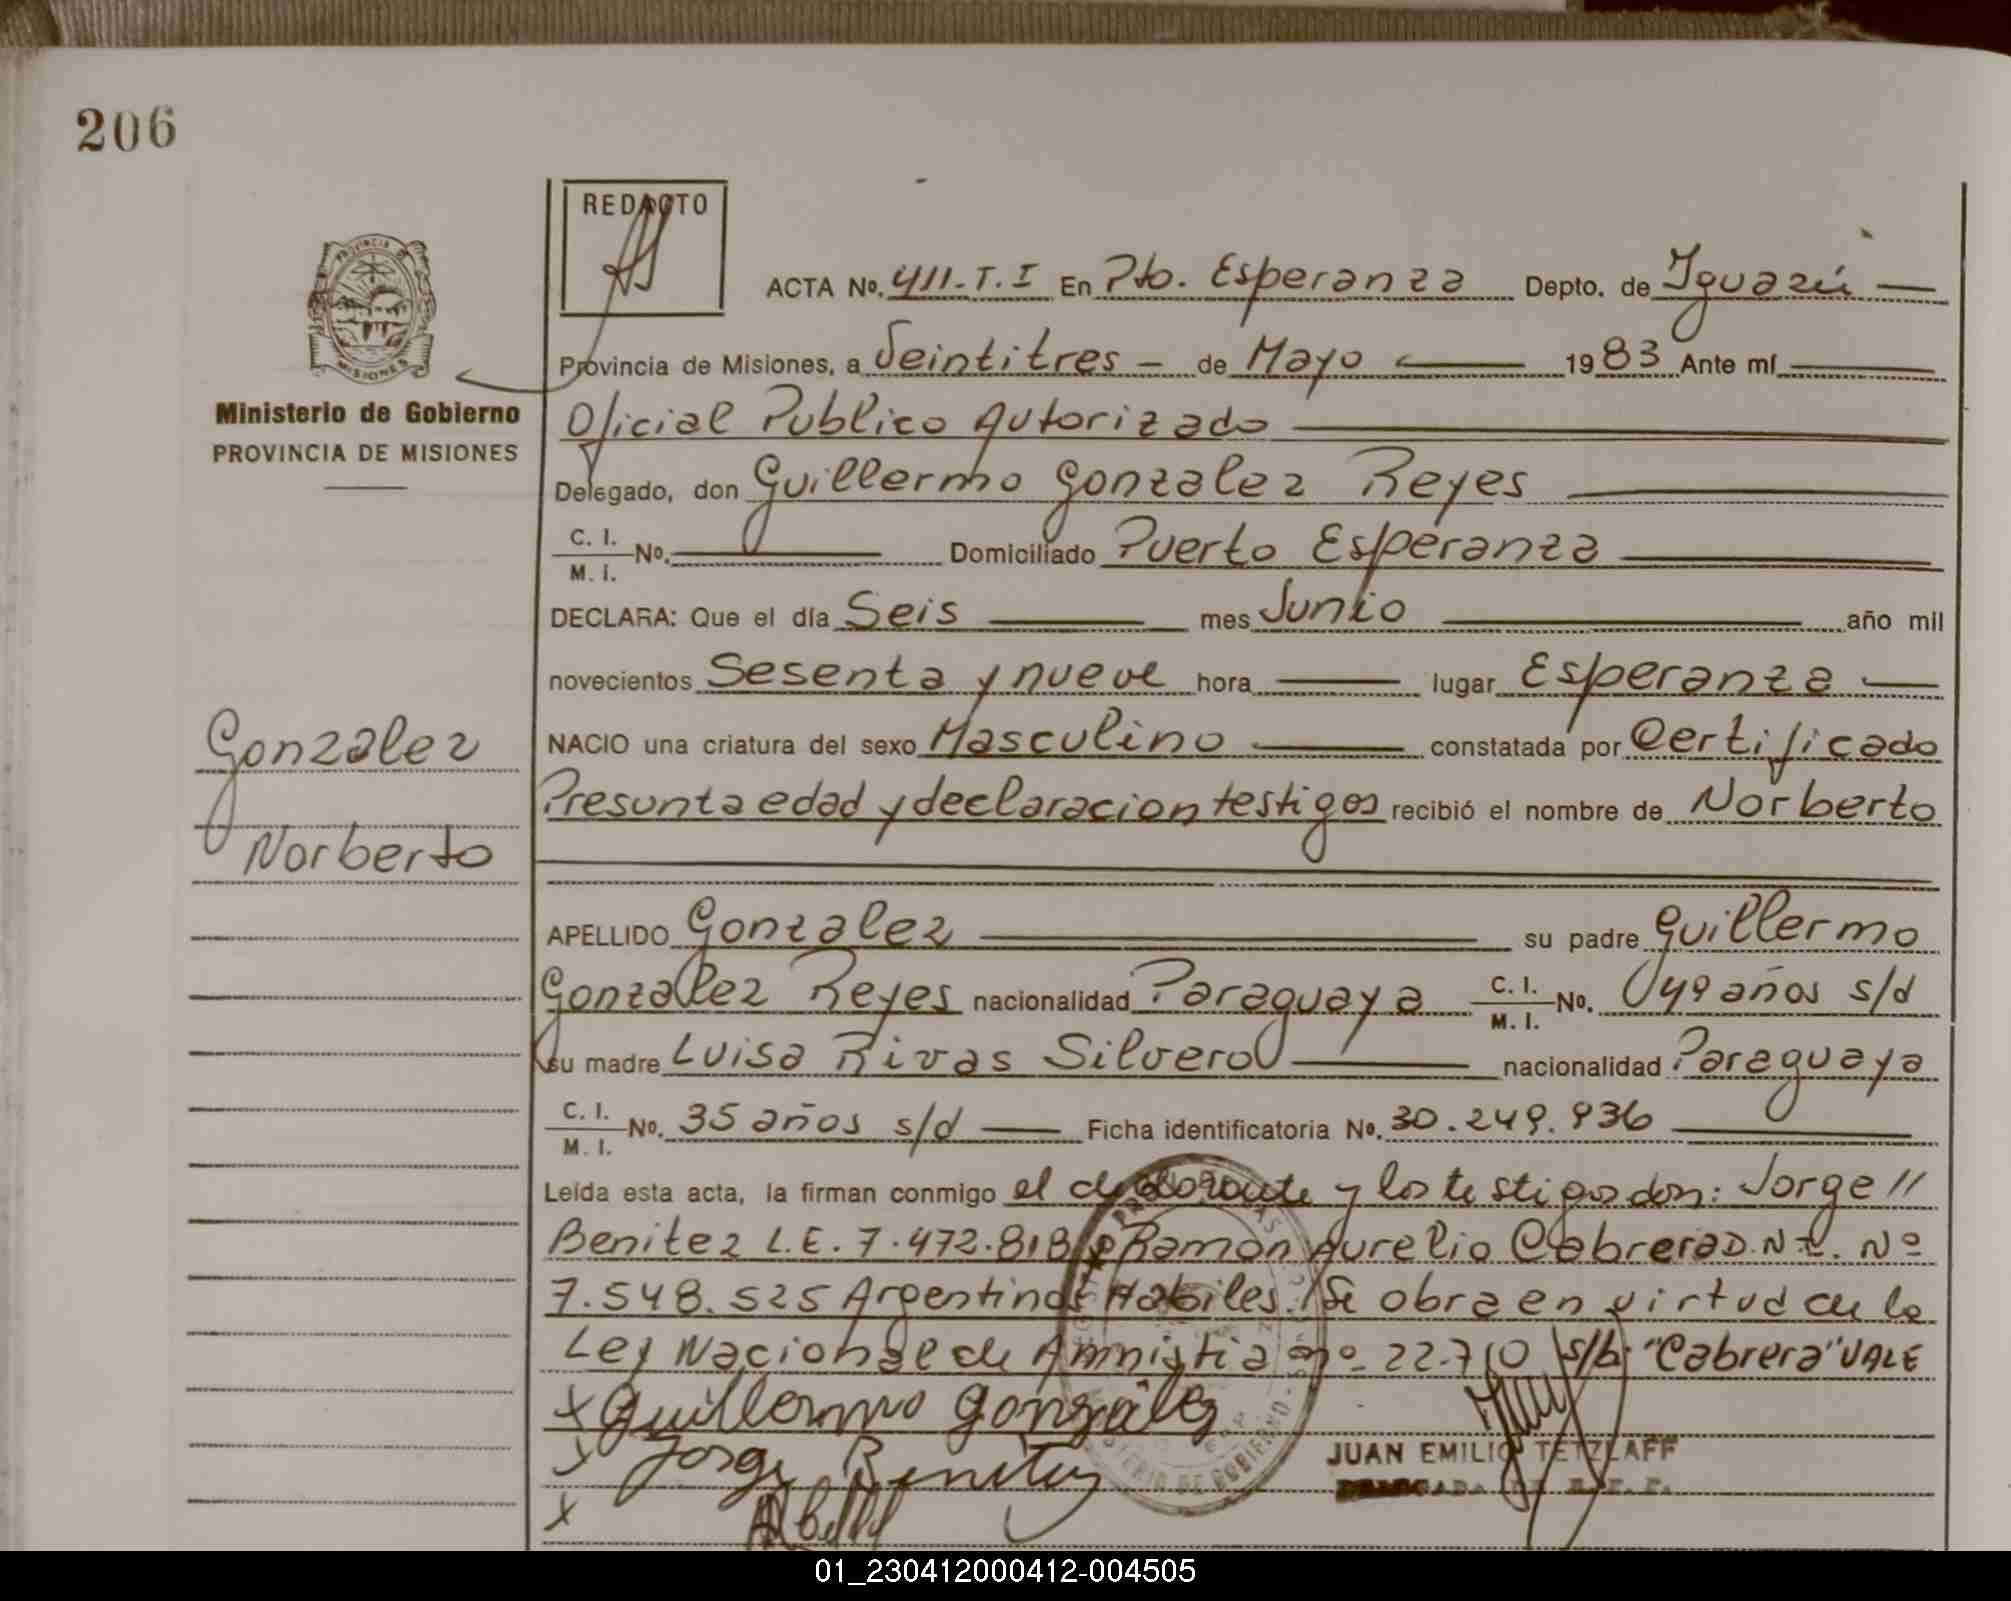 206
REDACTO
ACTA No. 411-T.I En Pto. Esperanza Depto. de Iguazú
Provincia de Misiones, a Veintitres - de Mayo 1983 Ante mí
Ministerio de Gobierno
PROVINCIA DE MISIONES
Oficial Publico Autorizado
Delegado, don Guillermo Gonzalez Reyes
C. I. / M. I. No. Domiciliado Puerto Esperanza
DECLARA: Que el día Seis mes Junio año mil
novecientos Sesenta y nueve hora lugar Esperanza
Gonzalez
NACIO una criatura del sexo Masculino constatada por Certificado
Presunta edad y declaracion testigos recibió el nombre de Norberto
Norberto
APELLIDO Gonzalez su padre Guillermo
Gonzalez Reyes nacionalidad Paraguaya C. I. / M. I. No. 49 años s/d
su madre Luisa Rivas Silvero nacionalidad Paraguaya
C. I. / M. I. No. 35 años s/d Ficha identificatoria No. 30.249.936
Leída esta acta, la firman conmigo el declarante y los testigos don: Jorge //
Benitez L.E. 7.472.818 Ramon Aurelio Cabrera D.N.I. Nº
7.548.525 Argentinos Habiles. Se obra en virtud de la
Ley Nacional de Amnistia nº 22.710 s/b: "Cabrera" VALE
x Guillermo González
x Jorge Benitez
JUAN EMILIO TETZLAFF
x
01_230412000412-004505